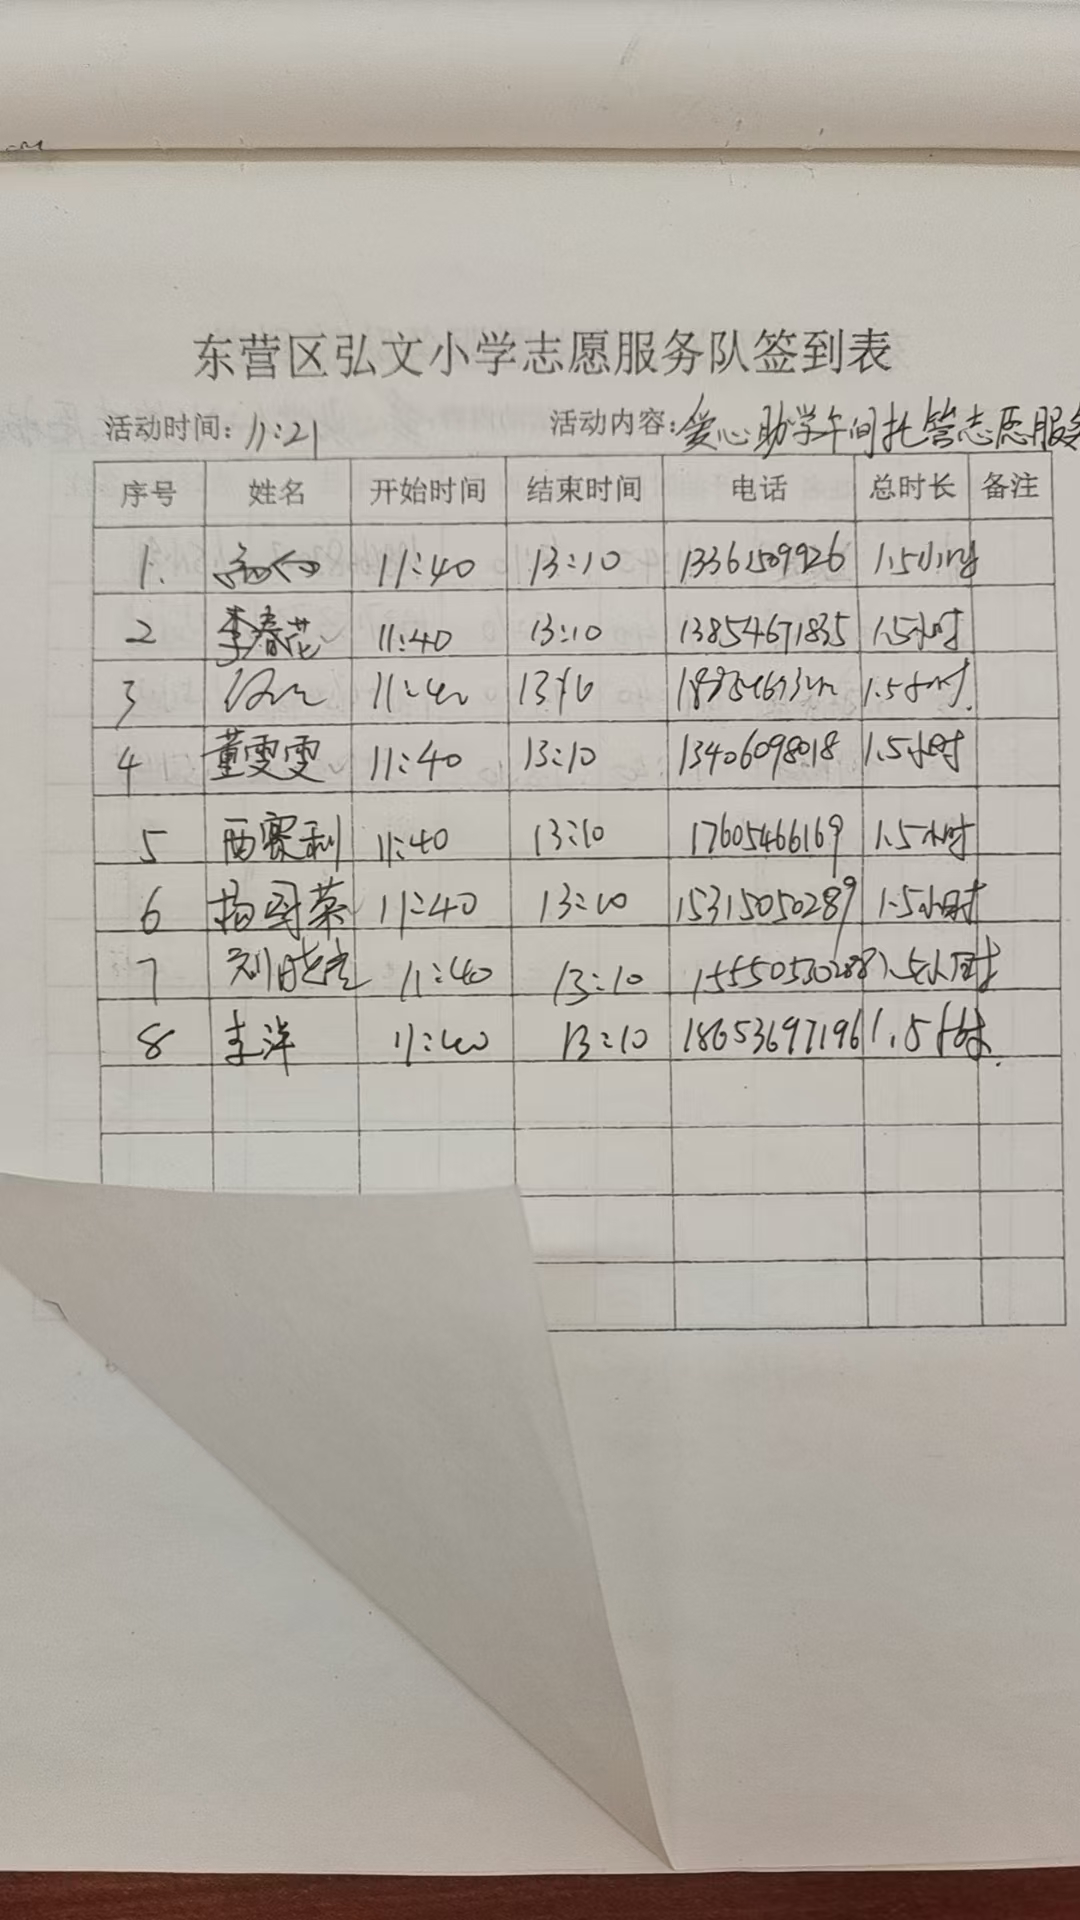 东营区弘文小学志愿服务队签到表
活动时间: 11:21 活动内容: 爱心助学午间托管志愿服务
序号 姓名 开始时间 结束时间 电话 总时长 备注
1. 11:40 13:10 13361509926 1.5小时
2 李春花 11:40 13:10 13854671835 1.5小时
3 11:40 13:10 1.5小时.
4 董雯雯 11:40 13:10 13406098018 1.5小时
5 西赛利 11:40 13:10 17605466169 1.5小时
6 11:40 13:10 15315050289 1.5小时
7 刘晓 11:40 13:10 15550530288 1.5小时
8 李洋 11:40 13:10 18653697196 1.5小时.